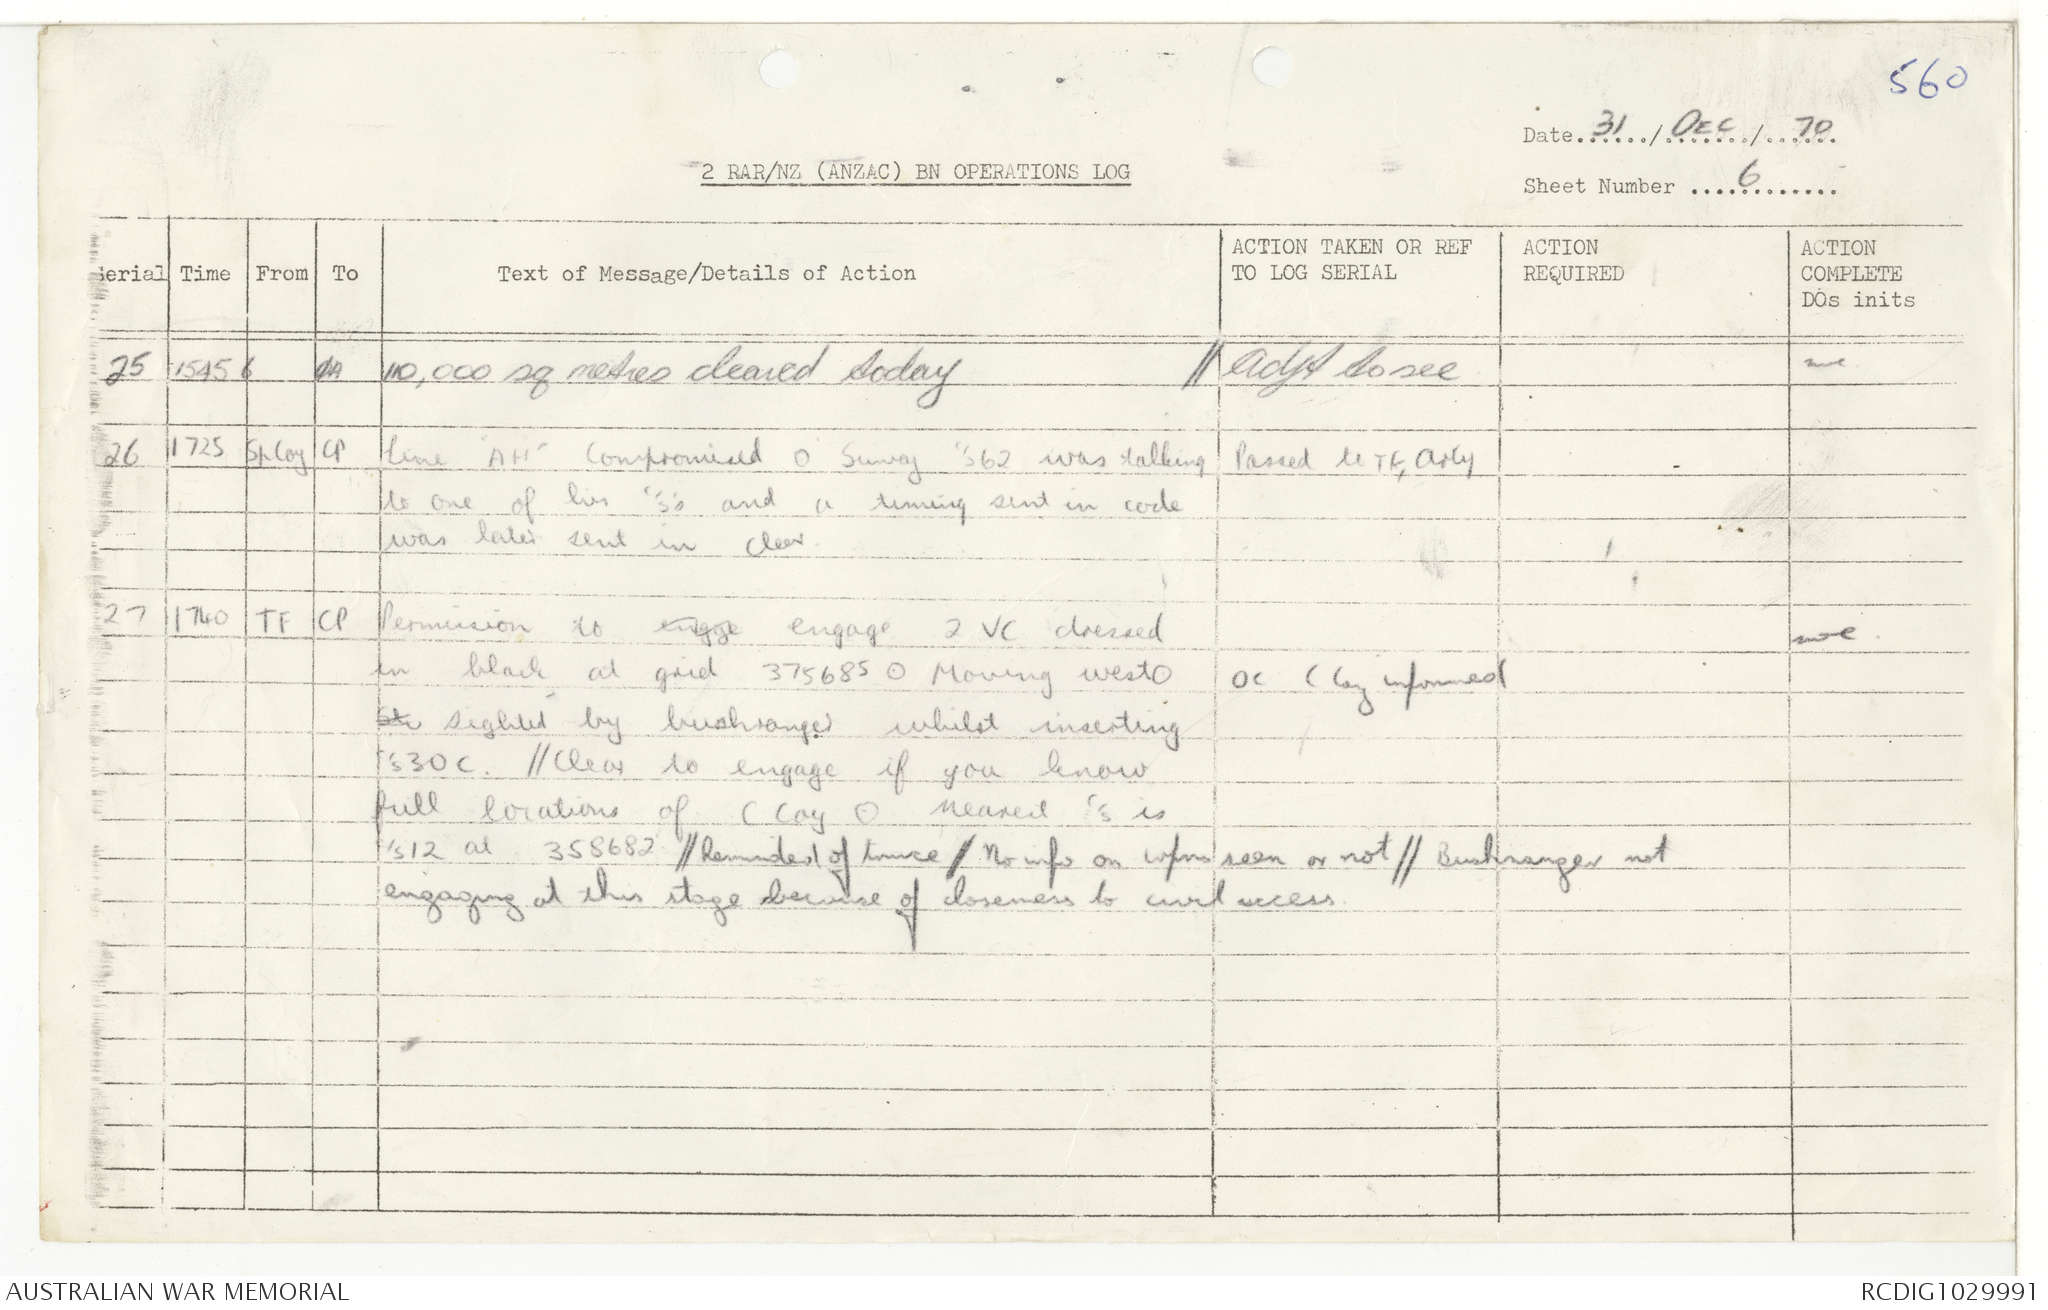 560
Date 31 / Dec / 70
2 RAR/NZ (ANZAC) BN OPERATIONS LOG
Sheet Number 6
Serial Time From To Text of Message/Details of Action ACTION TAKEN OR REF TO LOG SERIAL ACTION REQUIRED ACTION COMPLETE DOs inits
25 1545 6 110,000 sq metres cleared today // Adjt to see
26 1725 Sp Coy CP Line "AH" Compromised O Sunray 62 was talking Passed to TF, Arty
to one of his and a timing sent in code
was later sent in clear
27 1740 TF CP Permission to engage engage 2 VC dressed
in black at grid 375685 O Moving west O OC C Coy informed
sighted by bushranger whilst inserting
30C. // Clear to engage if you know
full locations of C Coy O Nearest is
12 at 358682 // Reminded of truce / No info on wpns seen or not // Bushranger not
engaging at this stage because of closeness to civil access.
AUSTRALIAN WAR MEMORIAL
RCDIG1029991